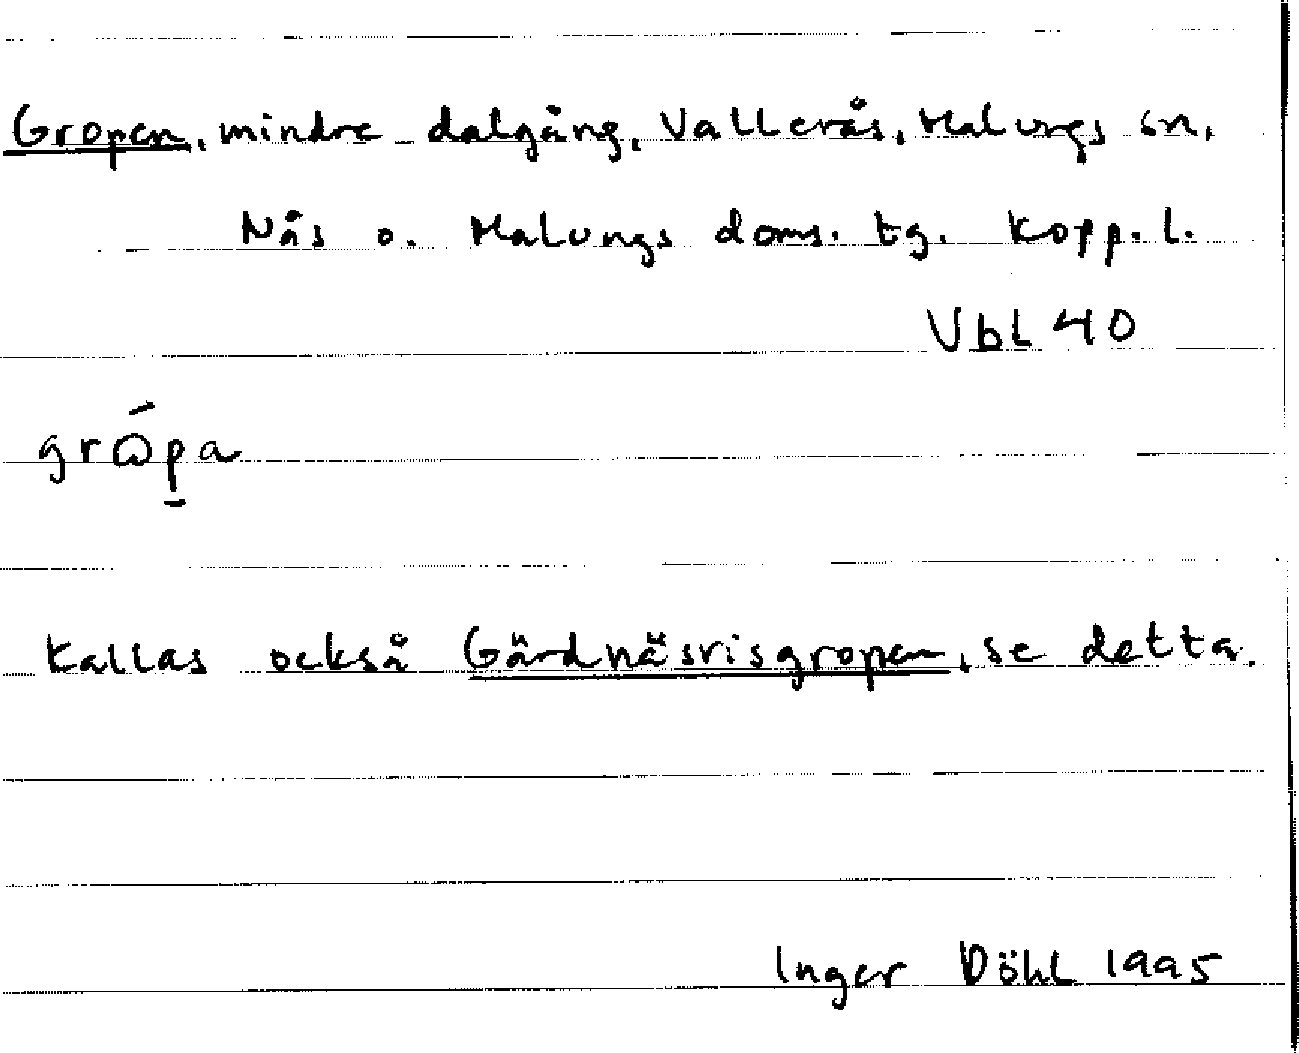 Gropen, mindre dalgång, Vallerås, Malungs sn,
Nås o. Malungs doms. tg. Kopp. l.
Vbl 40
grɷ́p̠a
Kallas också Gärdnäsrisgropen, se detta.
Inger Döhl 1995